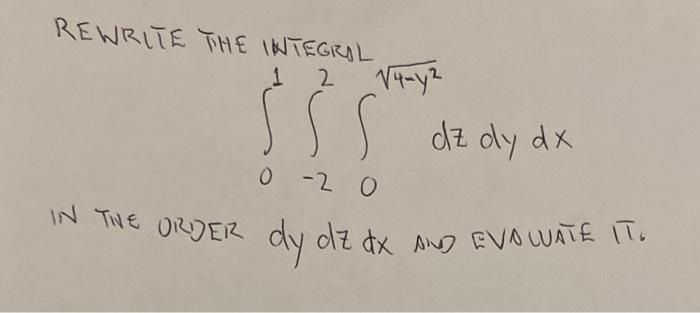 REWRITE THE INTEGRAL
∫₀¹ ∫₋₂² ∫₀^√(4-y²) dz dy dx
IN THE ORDER dy dz dx AND EVALUATE IT.